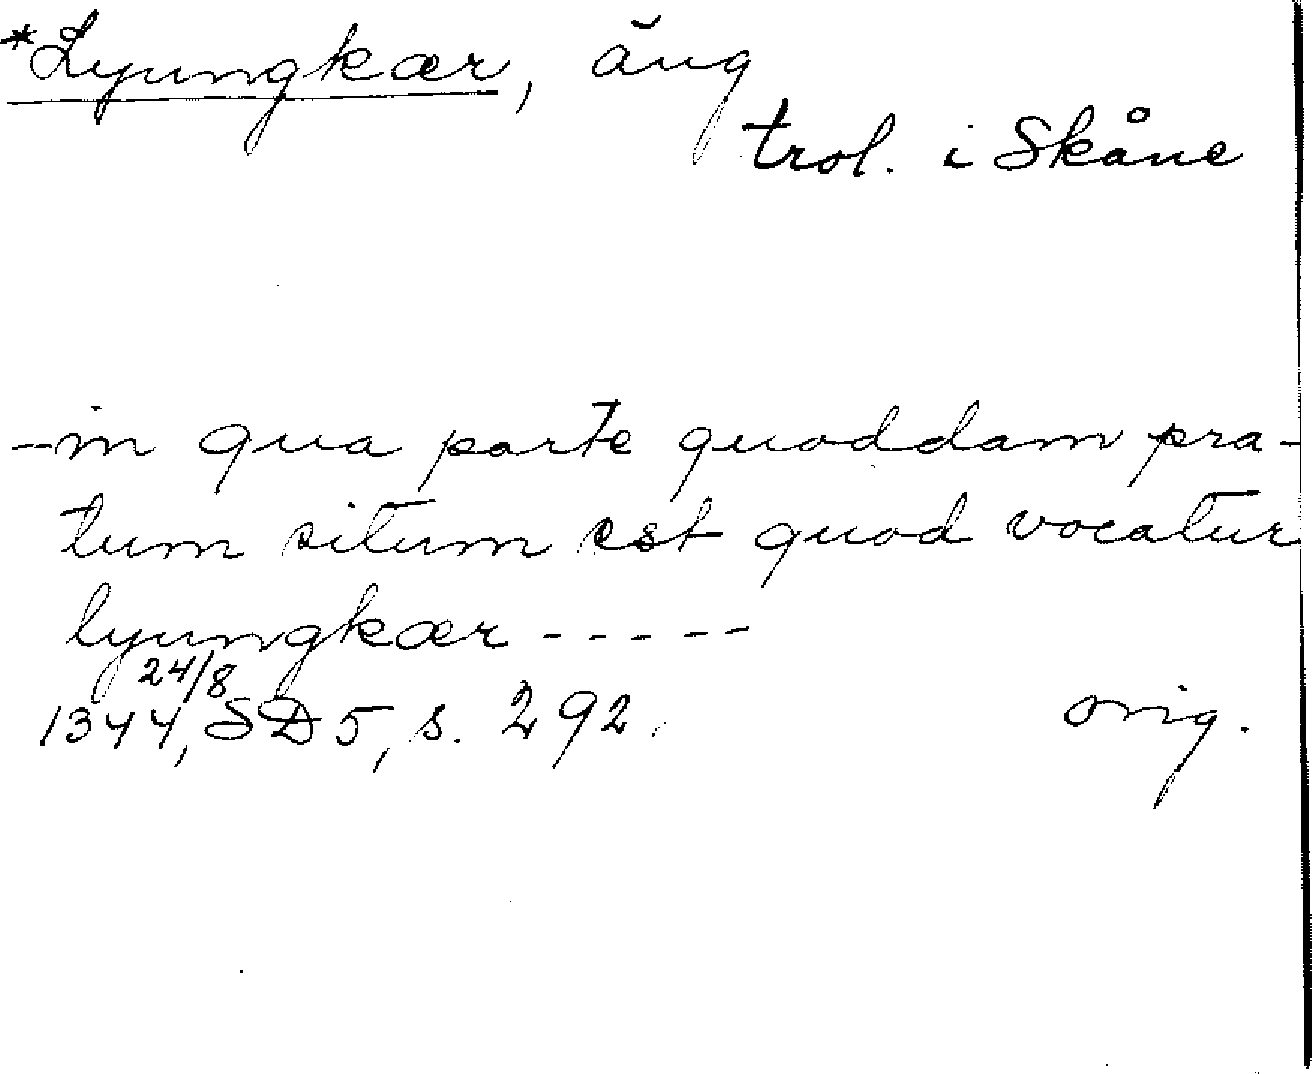 *Lyungkær, äng
trol. i Skåne
-- in qua parte quoddam pra-
tum situm est quod vocatur
lyungkær -----
24/8
1344, SD 5, s. 292. orig.